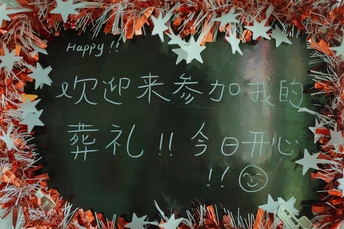 Happy!!
欢迎来参加我的
葬礼!! 今日开心
!!